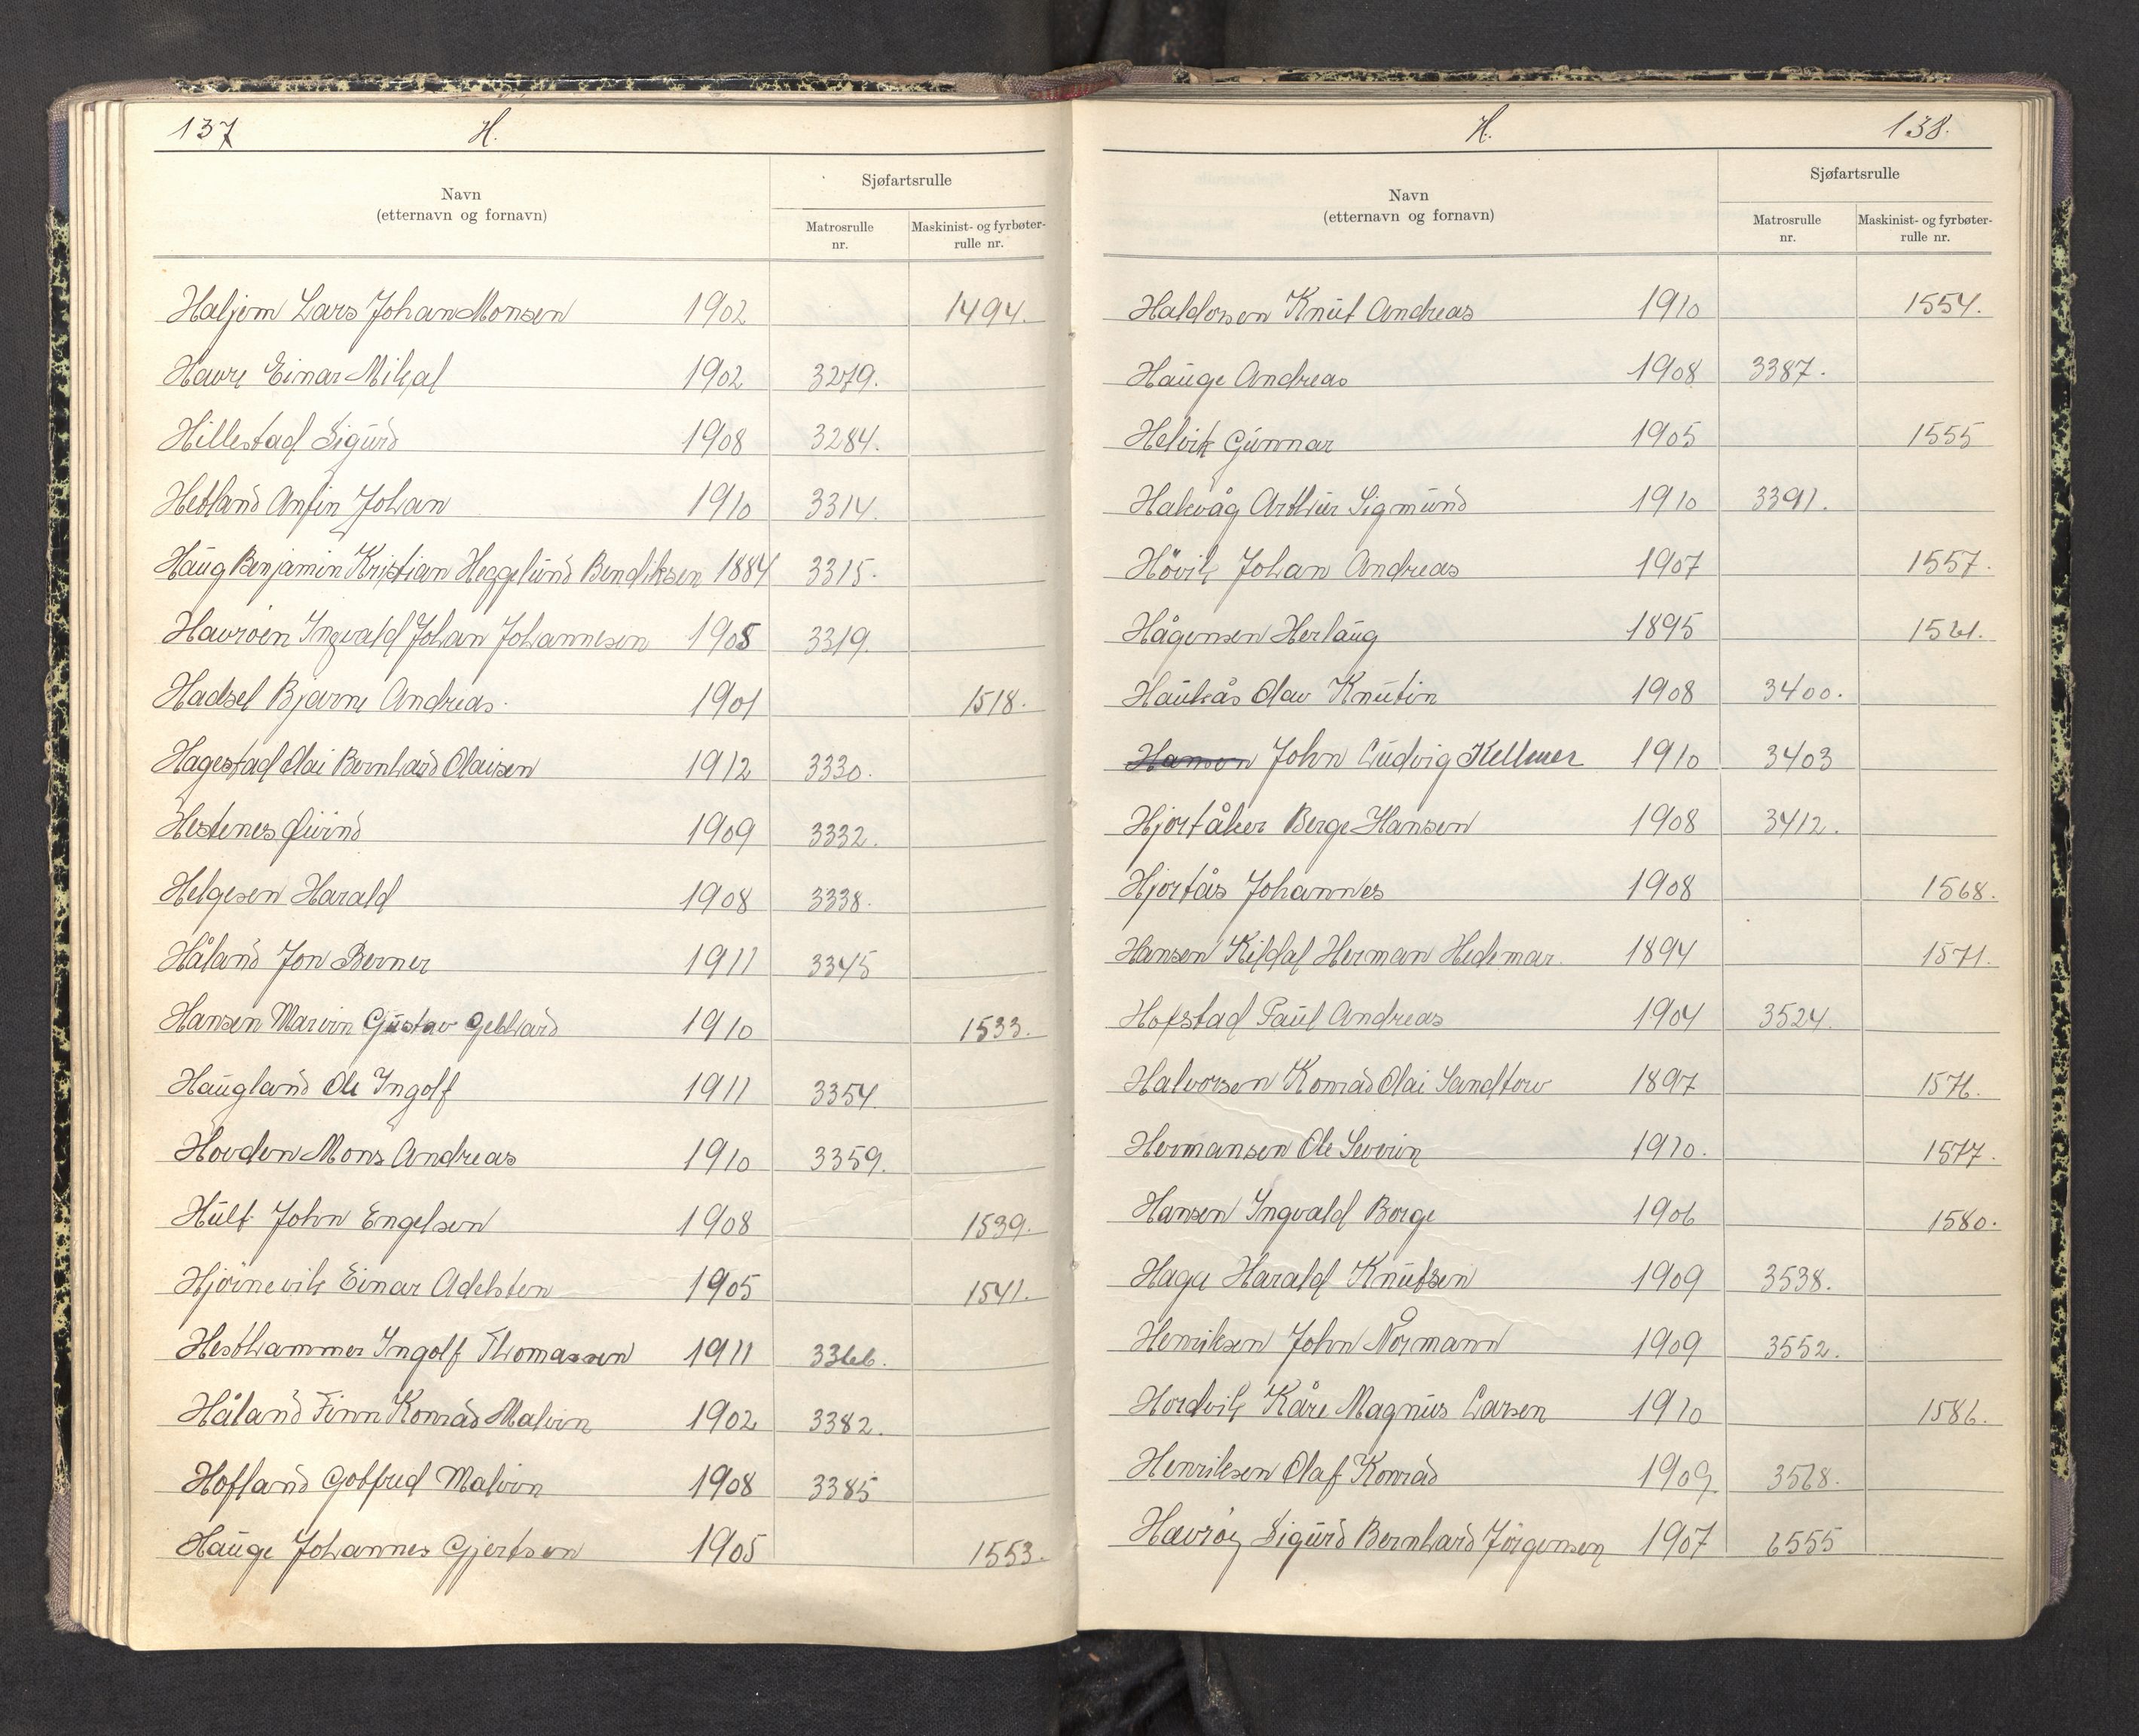 137 H.
Navn
(etternavn og fornavn)
Sjøfartsrulle
Matrosrulle
nr.
Maskinist- og fyrbøter-
rulle nr.
Haljem Lars Johan Monsen 1902 1494.
Havre Einar Mikal 1902 3279.
Hillestad Sigurd 1908 3284.
Hetland Anfin Johan 1910 3314.
Haug Benjamin Kristian Heggelund Bendiksen 1884 3315.
Havrøen Ingvald Johan Johannesen 1908 3319.
Hadsel Bjarne Andreas 1901 1518.
Hagestad Olai Bernhard Olaisen 1912 3330.
Hestenes Øivind 1909 3332.
Helgesen Harald 1908 3338.
Håland Jon Berner 1911 3345
Hansen Marvin Gustav Gebhard 1910 1533.
Haugland Ole Ingolf 1911 3354.
Hovden Mons Andreas 1910 3359.
Hult John Engelsen 1908 1539.
Hjörnevik Einar Adelsten 1905 1541.
Hesthammer Ingolf Thomassen 1911 3366.
Håland Finn Konrad Malvin 1902 3382.
Hofland Gotfred Malvin 1908 3385
Hauge Johannes Gjertsen 1905 1553.
H. 138.
Navn
(etternavn og fornavn)
Sjøfartsrulle
Matrosrulle
nr.
Maskinist- og fyrbøter-
rulle nr.
Haldorsen Knut Andreas 1910 1554.
Hauge Andreas 1908 3387.
Helvik Gunnar 1905 1555
Halvåg Arthur Sigmund 1910 3391.
Hövik Johan Andreas 1907 1557.
Hågensen Herlaug 1895 1561.
Haukås Olav Knutin 1908 3400.
Hanson John Ludvig Kellmer 1910 3403
Hjortåker Berge Hansen 1908 3412.
Hjortås Johannes 1908 1568.
Hansen Kildal Herman Hedemar. 1894 1571.
Hofstad Paul Andreas 1904 3524.
Halvorsen Konrad Olai Sandtorv 1897 1576.
Hermansen Ole Severin 1910. 1577.
Hansen Ingvald Borge 1906 1580.
Haga Harald Knutsen 1909 3538.
Henriksen John Normann 1909 3552.
Hordvik Kåre Magnus Larsen 1910 1586.
Henriksen Olaf Konrad 1909. 3568.
Havröy Sigurd Bernhard Jörgensen 1907 6555